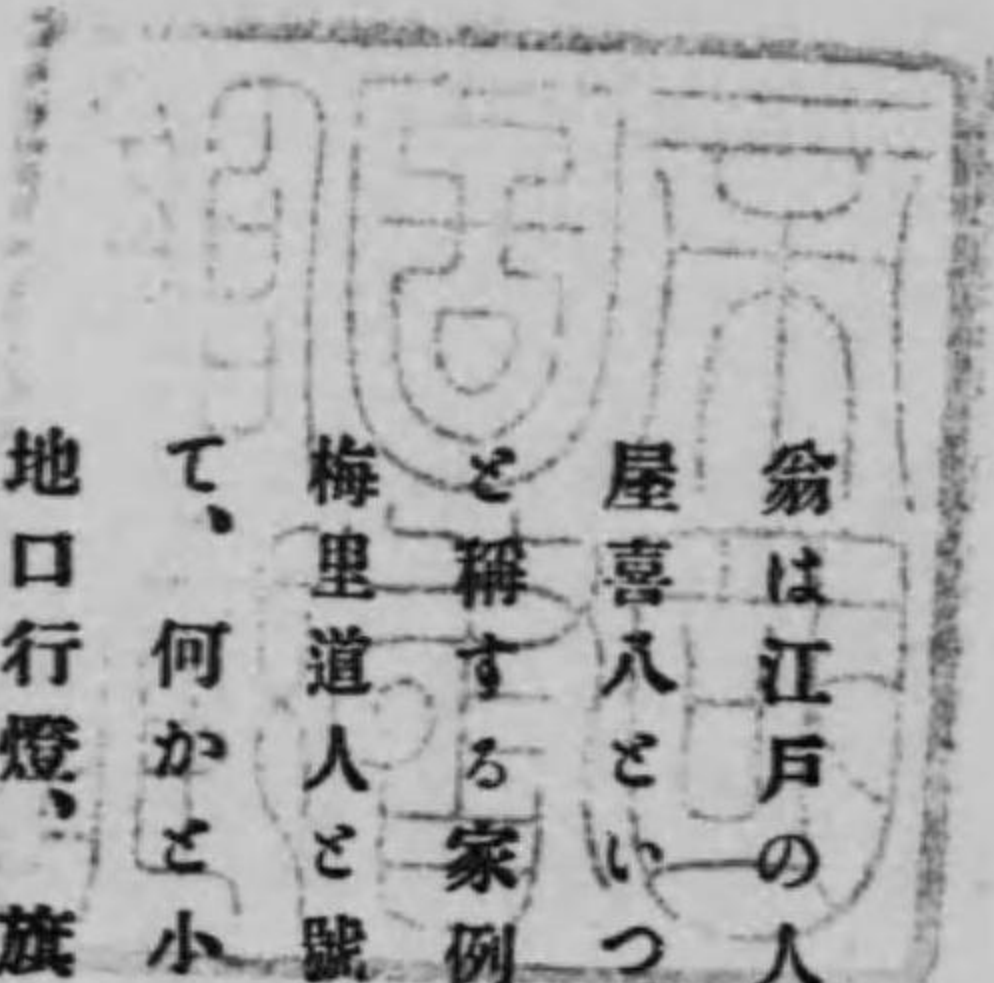 翁は江戸の人
屋喜八といつ
と稱する家例
梅里道人と號
て、何かと小
地口行燈、旗